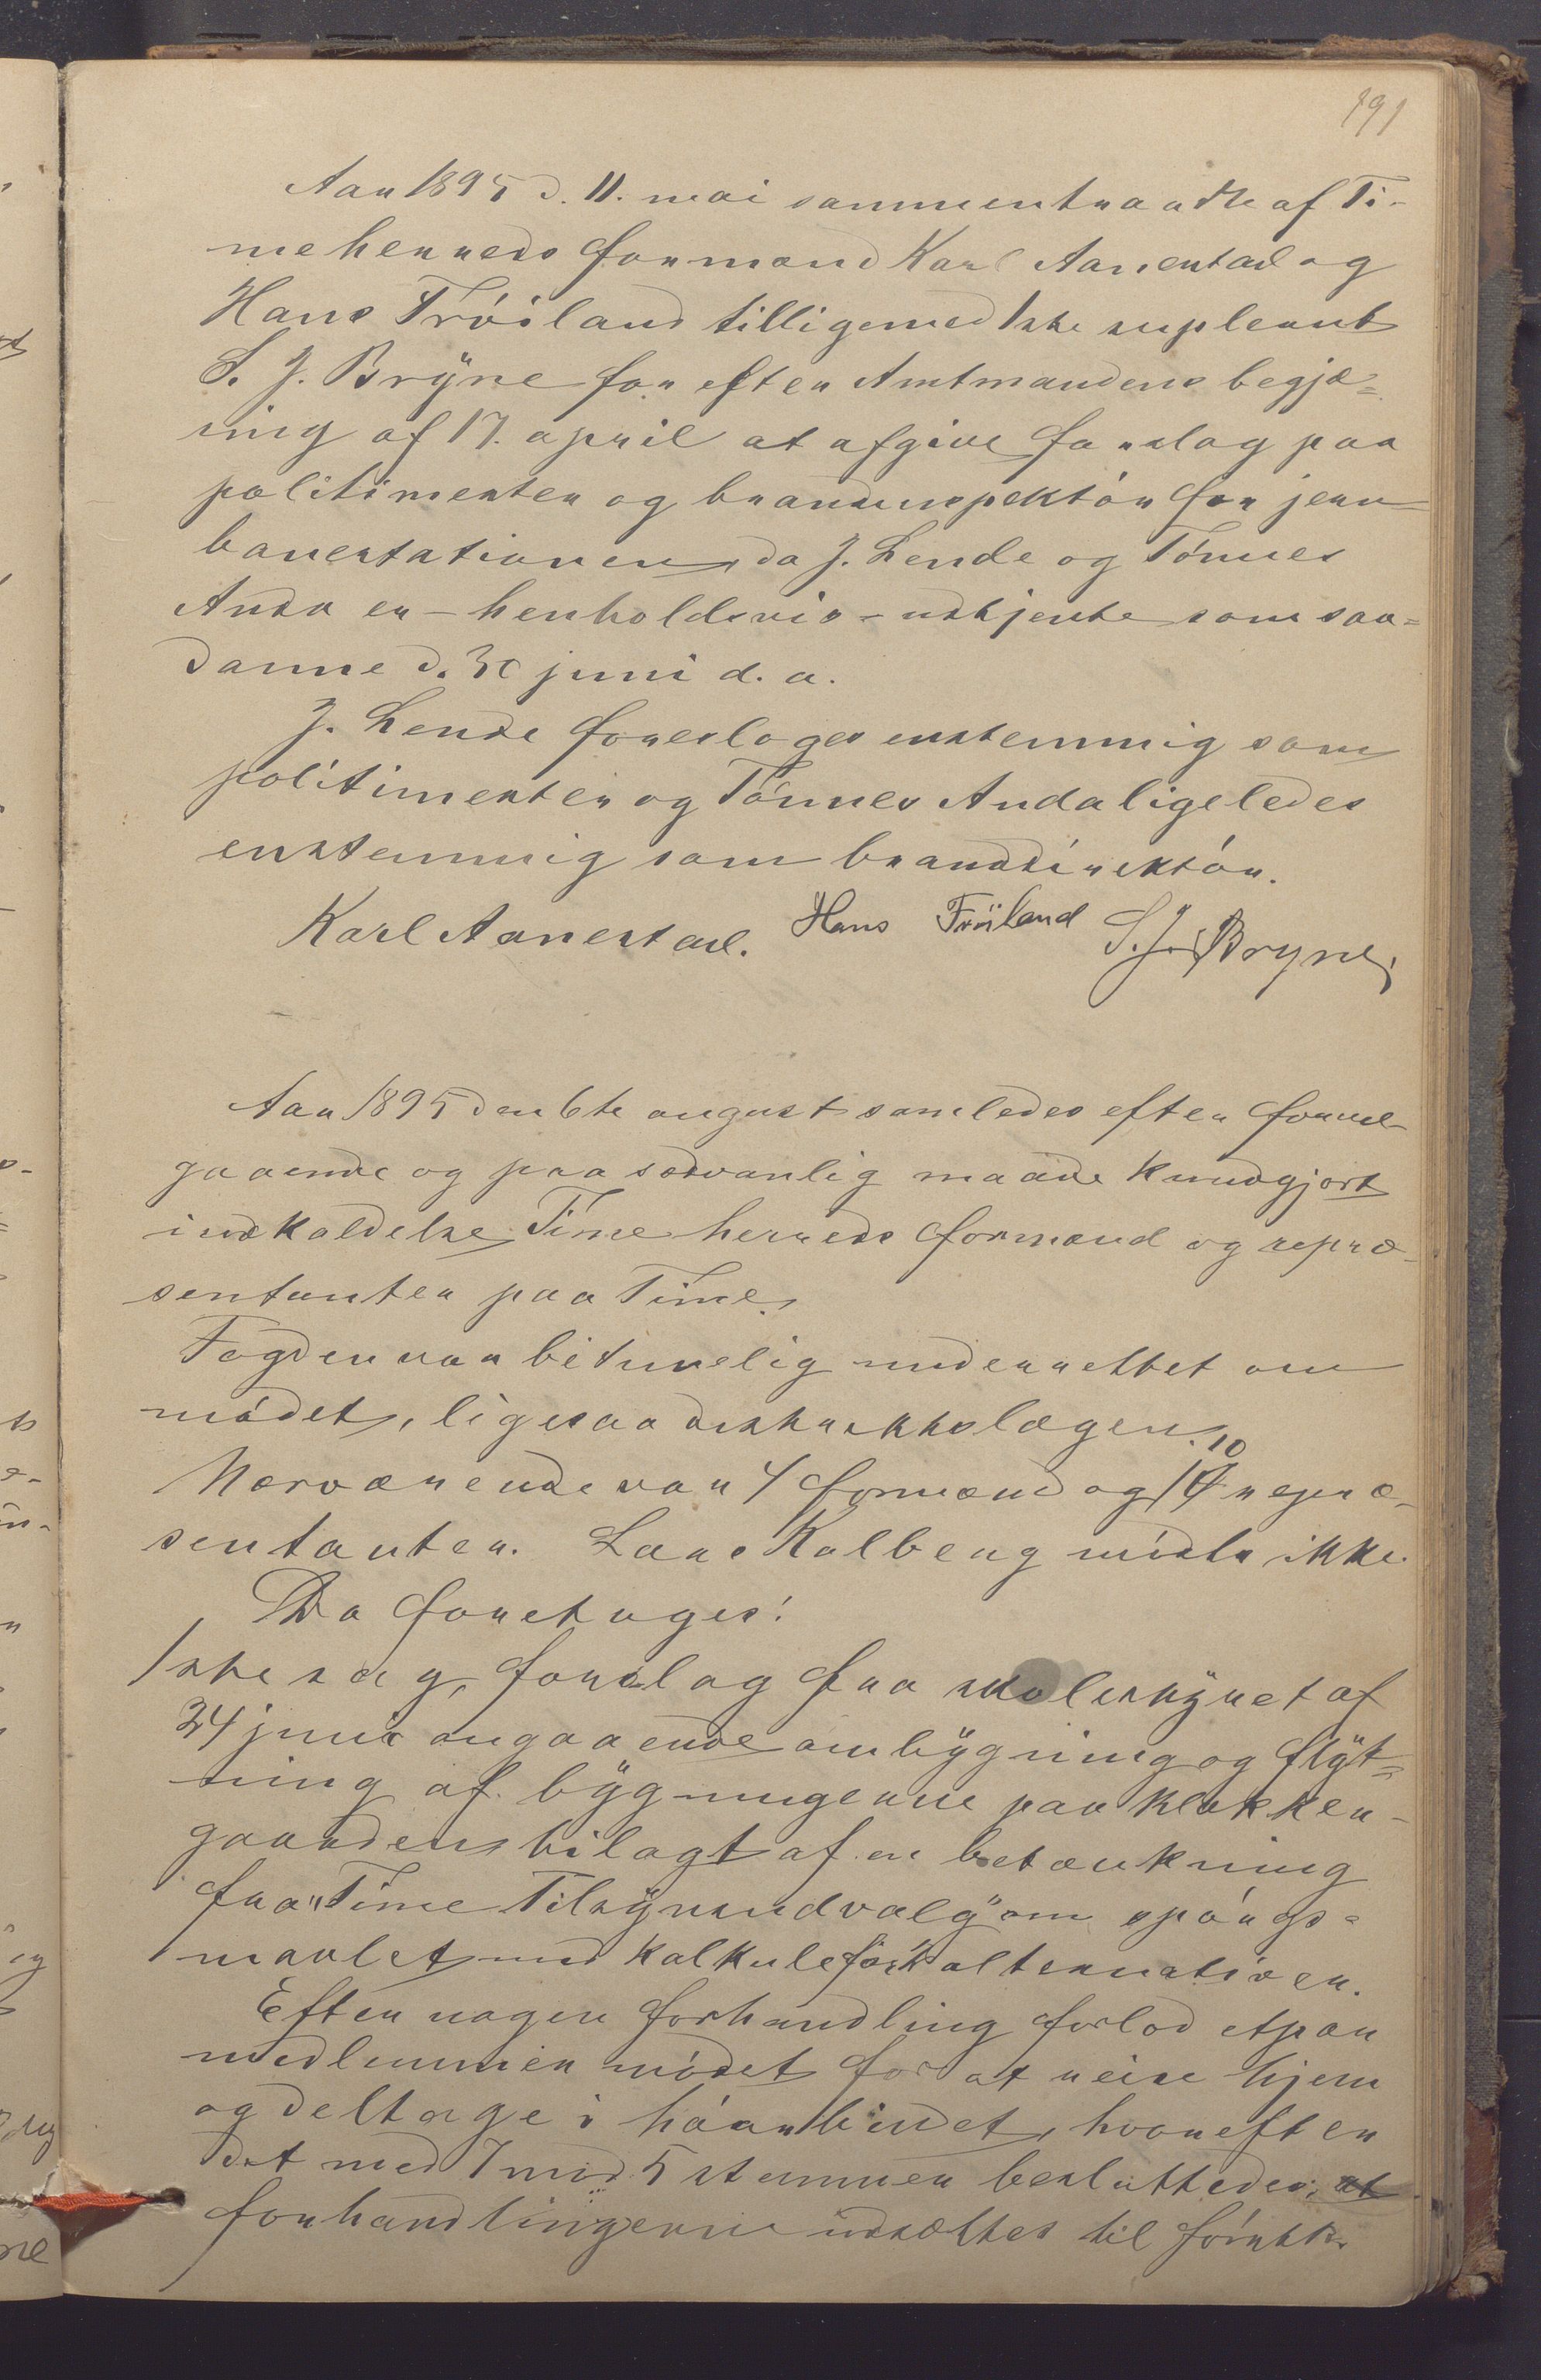 191
Aar 1895 d. 11. mai sammentraadte af Ti-
me herreds formænd Karl Aanestad og
Hans Fröiland tilligemed 1ste suppleant
S. J. Bryne for efter Amtmandens begjæ=
ring af 17. april at afgive forslag paa
politimester og brandinspektör for jern-
banestationen, da J. Lende og Tönnes
Anda er - henholdsvis - udtjente som saa=
danne d. 30 juni d. a.
J. Lende foresloges enstemmig som
politimester og Tönnes Anda ligeledes
enstemmig som branddirektör.
Karl Aanestad. Hans Fröiland S. J. Bryne,
Aar 1895 den 6te august samledes efter forud-
gaaende og paa sedvanlig maade kundgjort
indkaldelse Time herreds formænd og repræ-
sentanter paa Time.
Fogden var betimelig underrettet om
mödet, ligesaa distriktslægen.
Nærværende var 4 formænd og 10 repræ-
sentanter. Lars Kalberg mödte ikke.
Da foretoges:
1ste sag, forslag fra skolestyret af
24 juni angaaende ombygning og flyt=
ning af bygningerne paa klokker-
gaarden bilagt af en betænkning
fra "Time Tilsynsudvalg" om spörgs=
maalet med kalkule for alternativer.
Efter nogen forhandling forlod et par
medlemmer mödet for at reise hjem
og deltage i höarbeidet, hvorefter
det med 7 mod 5 stemmer besluttedes, at
forhandlingerne udsættes til förstk.